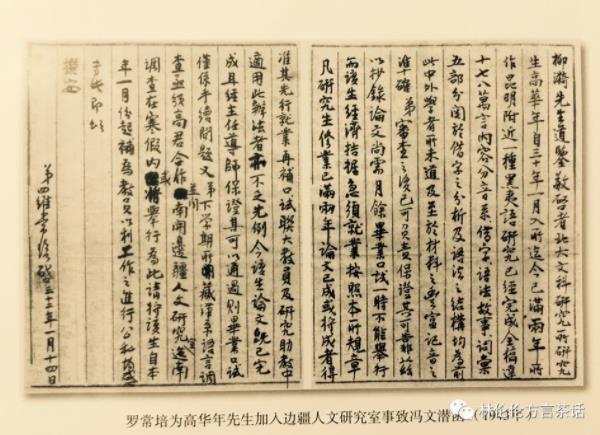 柳漪先生道鉴敬启者北大文科研究所研究
生高华年自三十年一月入所迄今已满两年所
作昆明附近一种黑夷语研究已经完成全稿逾
十七八万言内容分音系借字语法故事词汇
五部分关于借字之分析及语法之结构均为前
此中外学者所未道及至于材料之丰富记音之
准确弟审查之后已可负责保证其可靠兹
以抄录论文尚需月余毕业口试一时不能举行
而该生经济拮据急须就业按照本所规章
凡研究生修业已满两年论文已成或将成者得
准其先行就业再补口试联大教员及研究助教中
适用此办法者不乏先例今该生论文既已完
成且经主任导师保证其可以通过则毕业口试
仅系手续问题又弟下学期所开藏汉系语言调
查亟须高君合作并闻南开边疆人文研究室滇南
调查在寒假内举行为此请将该生自本
年一月份起补为教员以利工作之进行公私
考此即颂
撰安
弟罗常培启三十二年一月十四日
罗常培为高华年先生加入边疆人文研究室事致冯文潜函（1943年）
林伦伦方言茶话